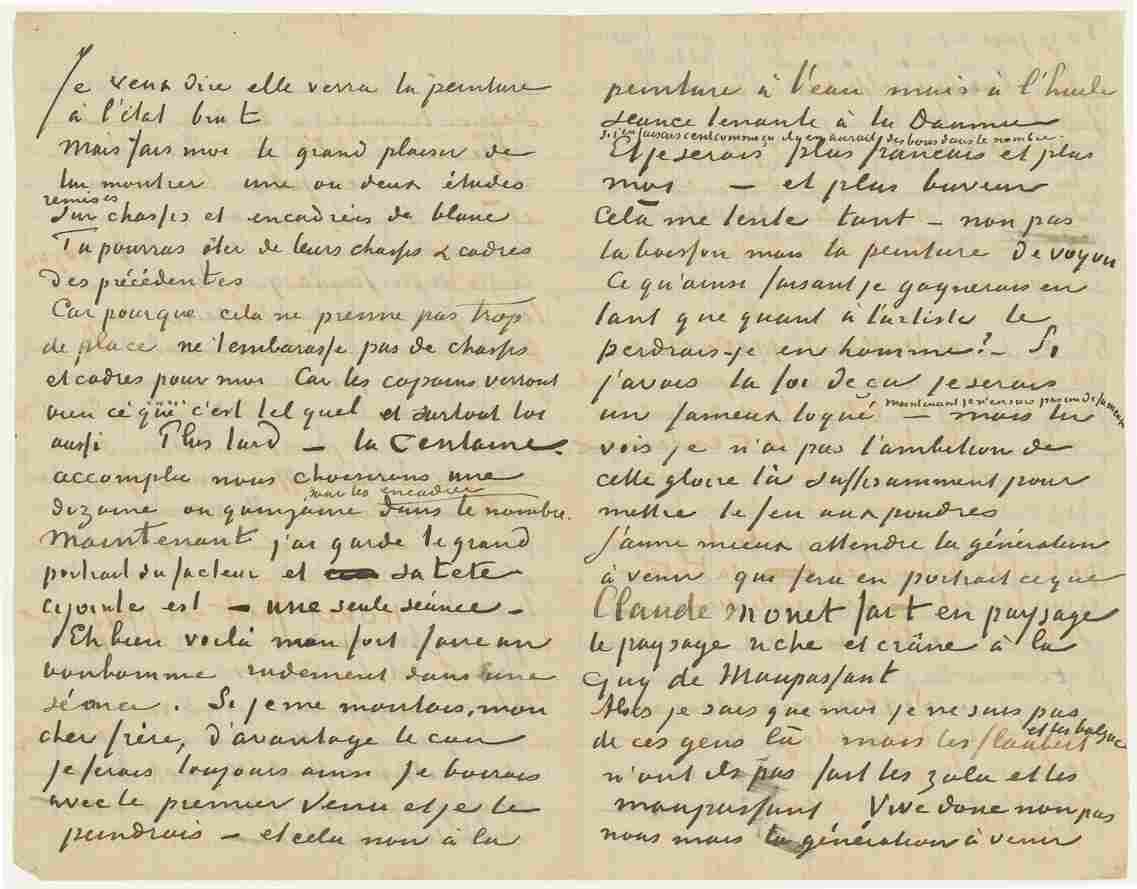 Je veux dire elle verra la peinture
à l'état brut
Mais fais moi le grand plaisir de
lui montrer une ou deux études
remises
sur chassis et encadrées de blanc
Tu pourras ôter de leurs chassis & cadres
des précédentes
Car pourque cela ne prenne pas trop
de place ne t'embarasse pas de chassis
et cadres pour moi Car les copains verront
bien ce que c'est tel quel et surtout toi
aussi Plus tard – la Centaine
accomplie nous choisirons une
pour les encadrer
dizaine ou quinzaine dans le nombre.
Maintenant j'ai gardé le grand
portrait du facteur et sa tete
ci jointe est – une seule séance –
Eh bien voilà mon fort faire un
bonhomme rudement dans une
séance. Si je me montais, mon
cher frère, d'avantage le cou
je ferais toujours ainsi je boirais
avec le premier venu et je le
peindrais – et cela non à la
peinture à l'eau mais à l'huile
séance tenante à la Daumier
Si j'en faisais cent comme ça il y en aurait des bons dans le nombre.
Et je serais plus francais et plus
moi – et plus buveur
Cela me tente tant – non pas
la boisson mais la peinture de voyou
Ce qu'ainsi faisant je gagnerais en
tant que quant à l'artiste le
perdrais-je en homme? – Si
j'avais la foi de ca je serais
maintenant je n'en suis pas un de fameux
un fameux toqué – mais tu
vois je n'ai pas l'ambition de
cette gloire là suffisamment pour
mettre le feu aux poudres
J'aime mieux attendre la génération
à venir qui fera en portrait ce que
Claude Monet fait en paysage
le paysage riche et crâne à la
Guy de Maupassant
Alors je sais que moi je ne suis pas
et les balzac
de ces gens là mais les flaubert
n'ont ils pas fait les zola et les
maupassant Vive donc non pas
nous mais la génération à venir